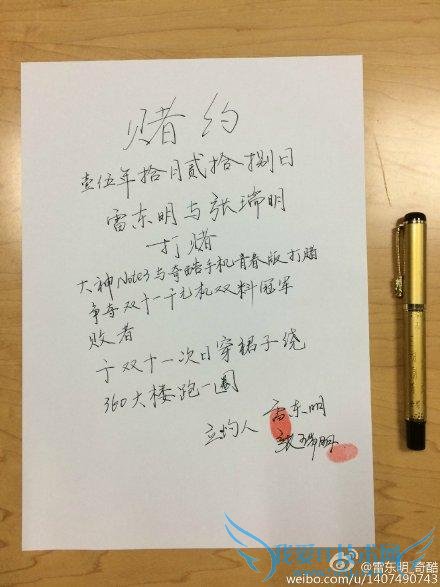 赌约
壹伍年拾月贰拾捌日
雷东明与张瑞明
打赌
大神Note3与奇酷手机青春版打赌
争夺双十一千元机双料冠军
败者
于双十一次日穿裙子绕
360大楼跑一圈
立约人 雷东明
张瑞明
@雷东明_奇酷
weibo.com/u/1407490743